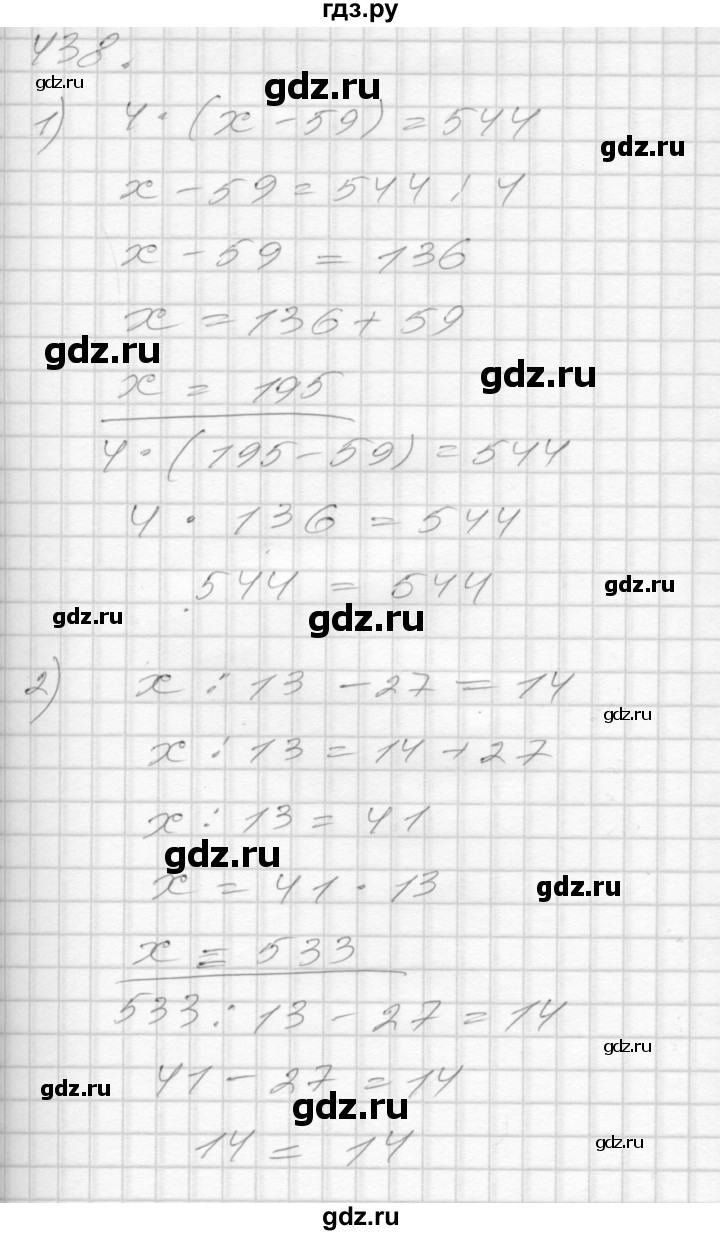 гдз.ру
438.
gdz.ru
gdz.ru
1) 4 · (x - 59) = 544
gdz.ru
x - 59 = 544 : 4
x - 59 = 136
x = 136 + 59
gdz.ru
gdz.ru
x = 195
4 · (195 - 59) = 544
4 · 136 = 544
544 = 544
gdz.ru
gdz.ru
gdz.ru
2) x : 13 - 27 = 14
gdz.ru
x : 13 = 14 + 27
x : 13 = 41
gdz.ru
x = 41 · 13
gdz.ru
x = 533
533 : 13 - 27 = 14
gdz.ru
41 - 27 = 14
gdz.ru
gdz.ru
14 = 14
gdz.ru
gdz.ru